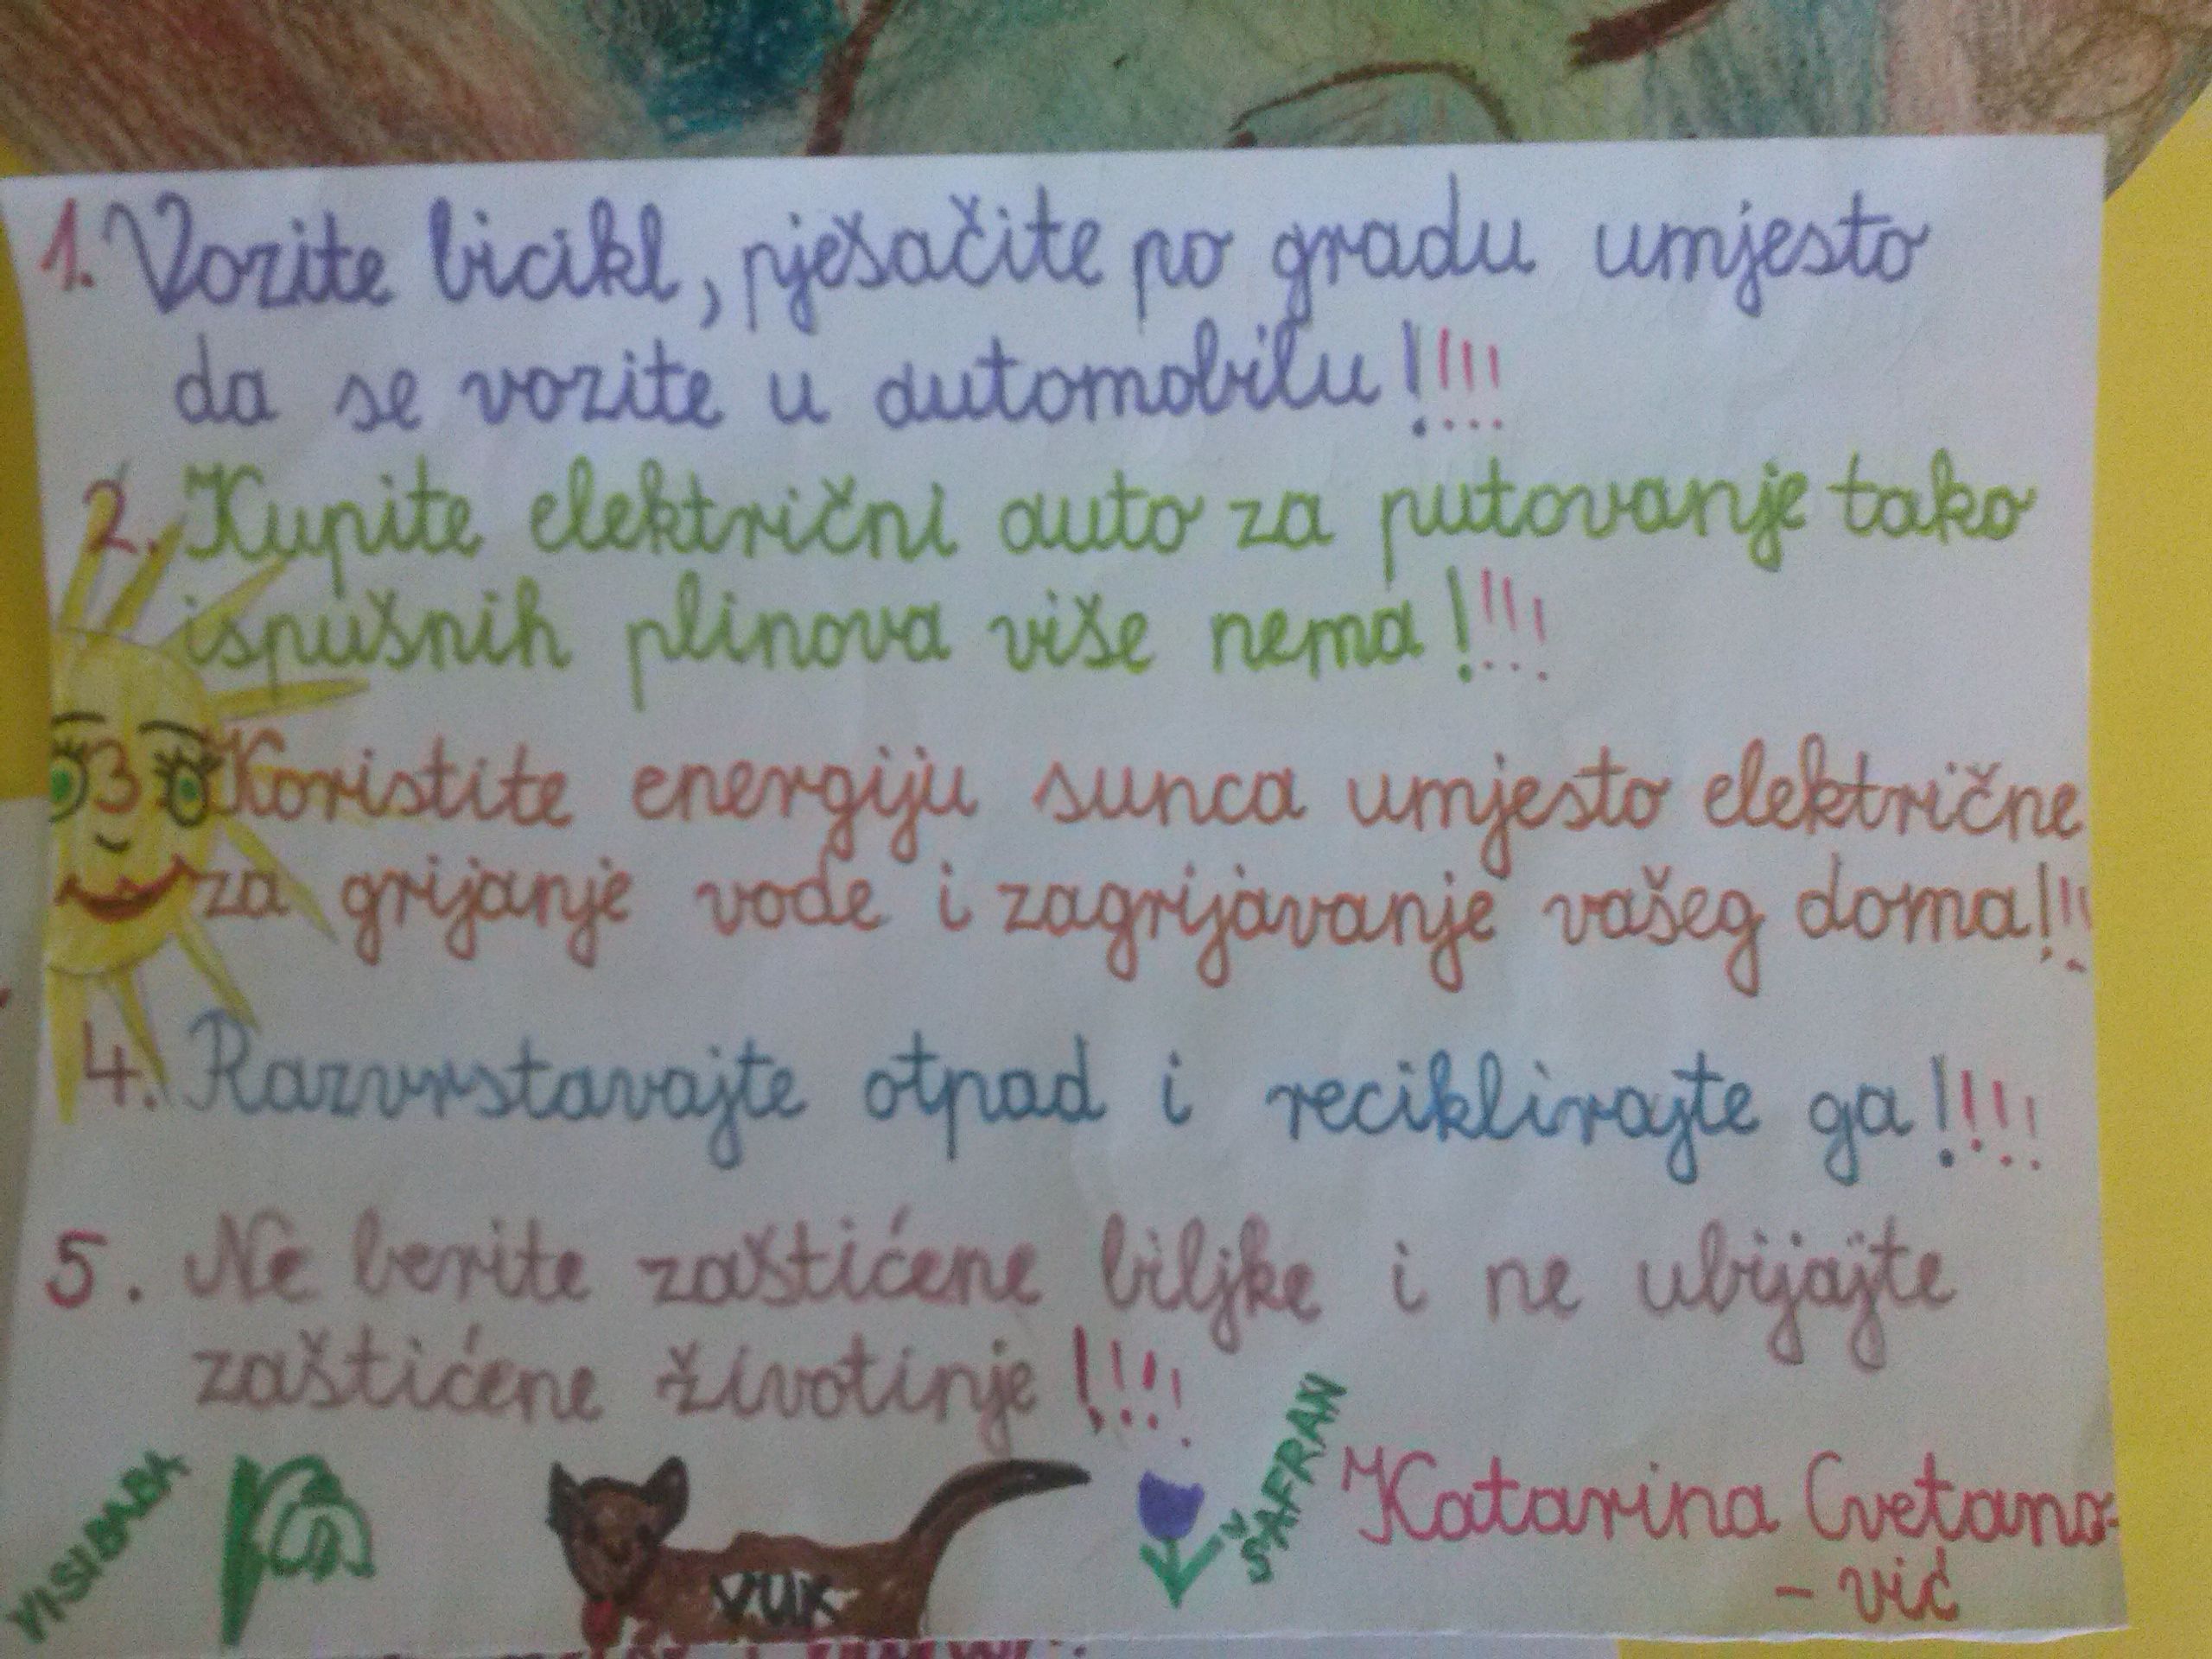 1. Vozite bicikl, pješačite po gradu umjesto
da se vozite u automobilu!!!!
2. Kupite električni auto za putovanje tako
ispušnih plinova više nema!!!!
3 Koristite energiju sunca umjesto električne
za grijanje vode i zagrijavanje vašeg doma!!!
4. Razvrstavajte otpad i reciklirajte ga!!!!
5. Ne berite zaštićene biljke i ne ubijajte
zaštićene životinje!!!!
VISIBABA
VUK
ŠAFRAN
Katarina Cvetano-
- vić